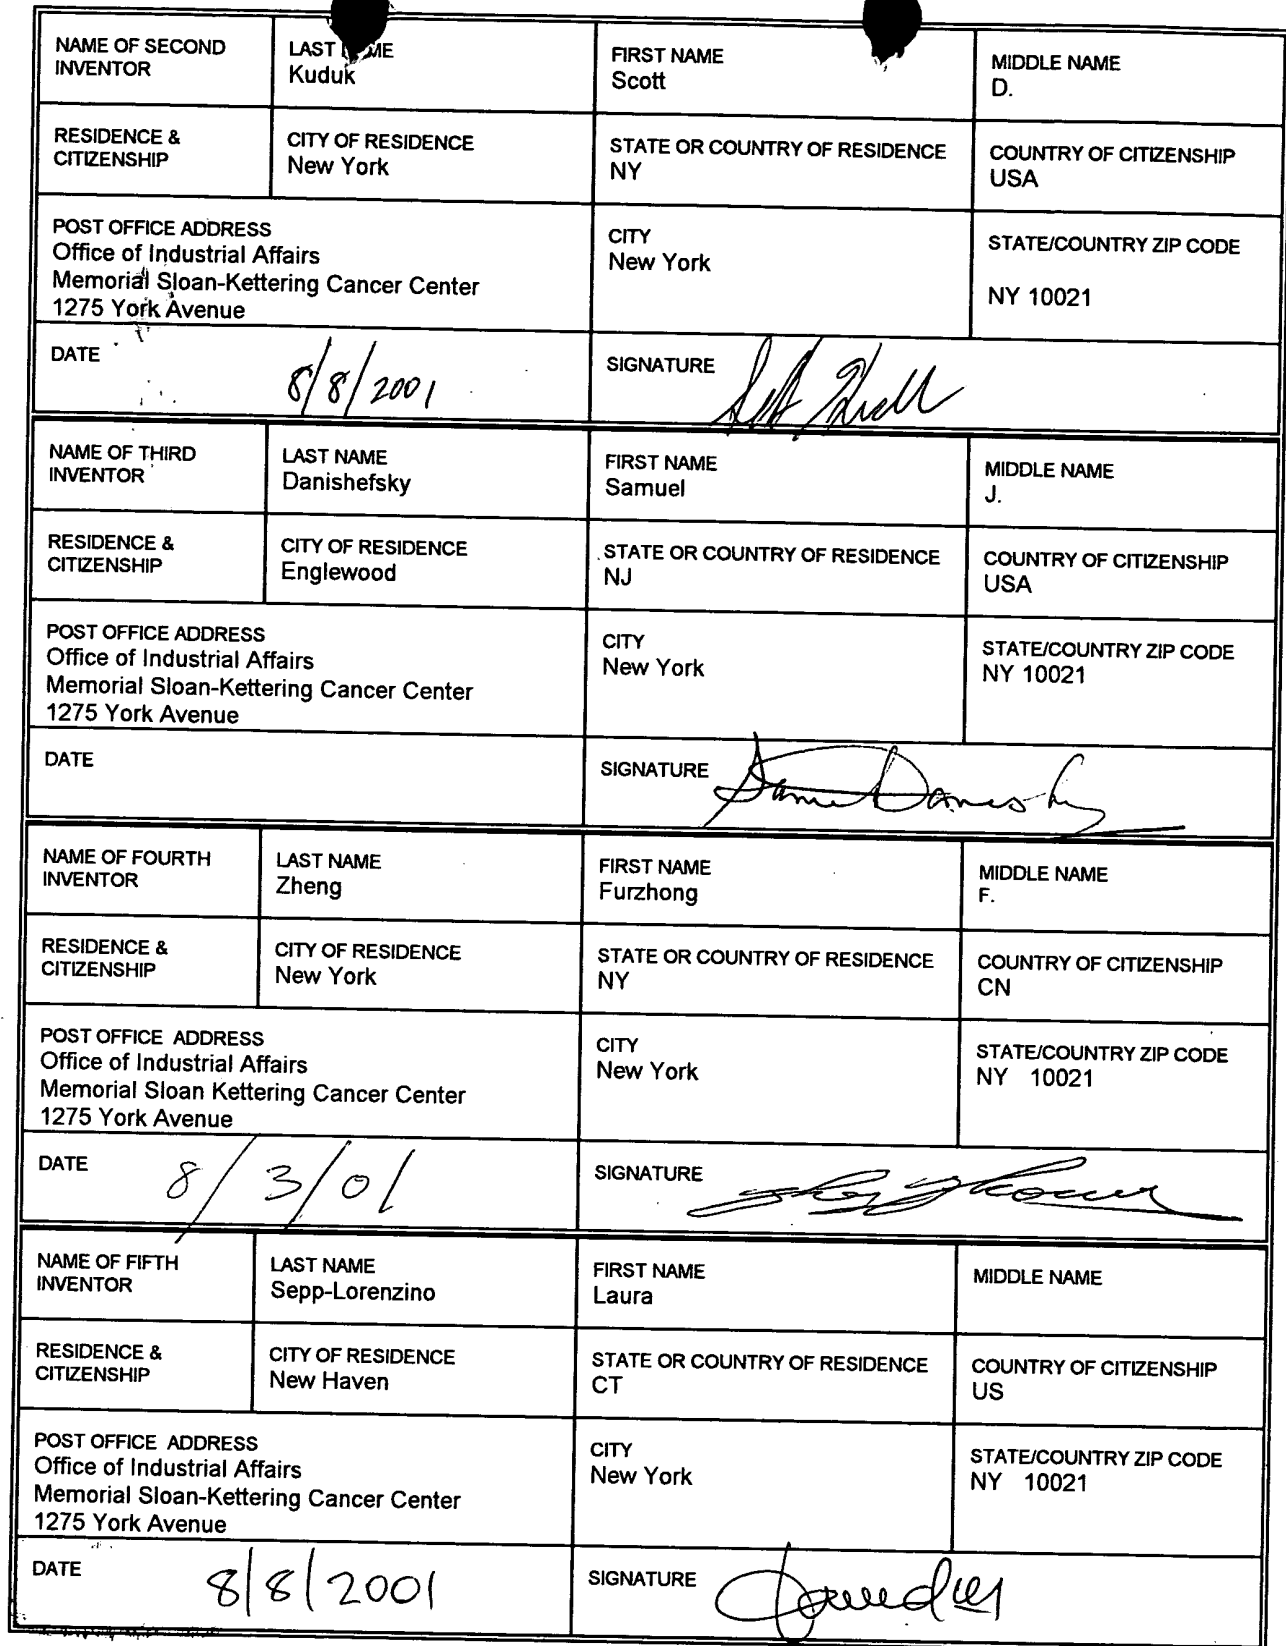 NAME OF SECOND
INVENTOR
LAST NAME
Kuduk
FIRST NAME
Scott
MIDDLE NAME
D.
RESIDENCE &
CITIZENSHIP
CITY OF RESIDENCE
New York
STATE OR COUNTRY OF RESIDENCE
NY
COUNTRY OF CITIZENSHIP
USA
POST OFFICE ADDRESS
Office of Industrial Affairs
Memorial Sloan-Kettering Cancer Center
1275 York Avenue
CITY
New York
STATE/COUNTRY ZIP CODE
NY 10021
DATE
8/8/2001
SIGNATURE
NAME OF THIRD
INVENTOR
LAST NAME
Danishefsky
FIRST NAME
Samuel
MIDDLE NAME
J.
RESIDENCE &
CITIZENSHIP
CITY OF RESIDENCE
Englewood
STATE OR COUNTRY OF RESIDENCE
NJ
COUNTRY OF CITIZENSHIP
USA
POST OFFICE ADDRESS
Office of Industrial Affairs
Memorial Sloan-Kettering Cancer Center
1275 York Avenue
CITY
New York
STATE/COUNTRY ZIP CODE
NY 10021
DATE
SIGNATURE
NAME OF FOURTH
INVENTOR
LAST NAME
Zheng
FIRST NAME
Furzhong
MIDDLE NAME
F.
RESIDENCE &
CITIZENSHIP
CITY OF RESIDENCE
New York
STATE OR COUNTRY OF RESIDENCE
NY
COUNTRY OF CITIZENSHIP
CN
POST OFFICE ADDRESS
Office of Industrial Affairs
Memorial Sloan Kettering Cancer Center
1275 York Avenue
CITY
New York
STATE/COUNTRY ZIP CODE
NY 10021
DATE
8/3/01
SIGNATURE
NAME OF FIFTH
INVENTOR
LAST NAME
Sepp-Lorenzino
FIRST NAME
Laura
MIDDLE NAME
RESIDENCE &
CITIZENSHIP
CITY OF RESIDENCE
New Haven
STATE OR COUNTRY OF RESIDENCE
CT
COUNTRY OF CITIZENSHIP
US
POST OFFICE ADDRESS
Office of Industrial Affairs
Memorial Sloan-Kettering Cancer Center
1275 York Avenue
CITY
New York
STATE/COUNTRY ZIP CODE
NY 10021
DATE
8/8/2001
SIGNATURE